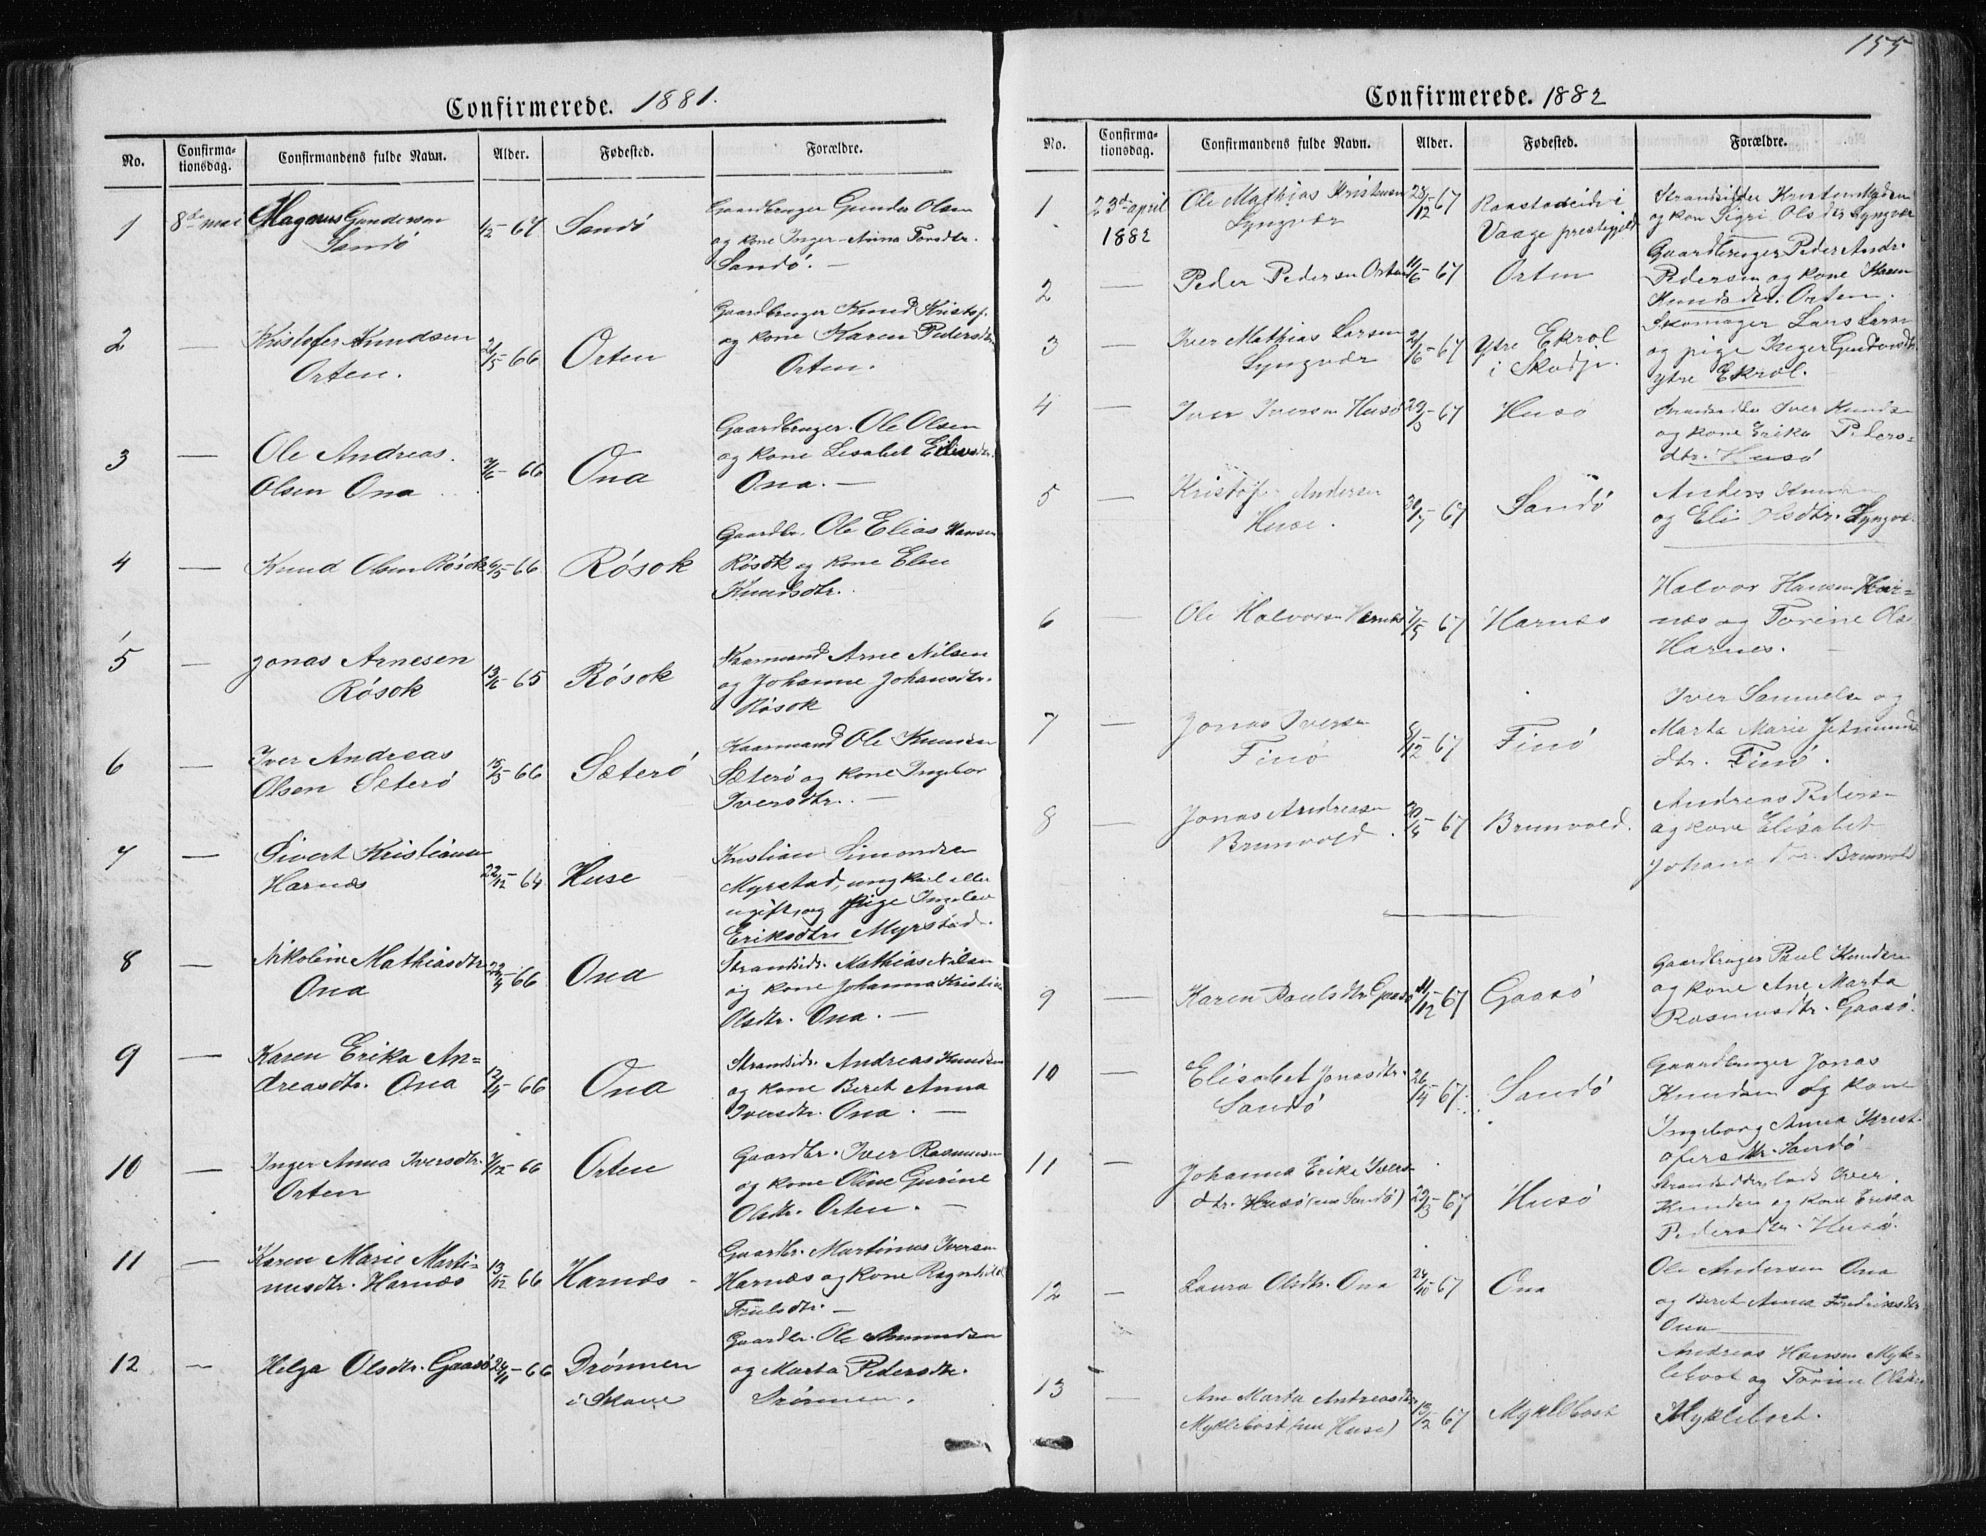 155
Confirmerede. 1881.
No. Confirma-tionsdag. Confirmandens fulde Navn. Alder. Fødested. Forældre.
1 8de mai Magnus Gundersen Sandö 1/2-67 Sandö
Gaardbruger Gunder Olsen
og kone Inger Anna
Sandö. —
2 — Kristofer Knudsen Orten. 2/5 66 Orten
Gaardbruger Knud Kristof.
og kone Karen Pedersdtr
Orten.
3 — Ole Andreas Olsen Ona 66 Ona
Gaardbruger Ole Olsen
og kone Lisabet
Ona. —
4 — Knud Olsen Rösok 66 Rösok
Gaardbr. Ole Elias Hansen
Rösok og kone Elen
Knudsdtr.
5 — Jonas Arnesen Rösok 13/6-65 Rösok
Kaarmand Arne Nilsen
og Johanne Johansdtr.
Rösok
6 — Iver Andreas Olsen Sæterö 15/5-66 Sæterö
Kaarmand Ole Knudsen
Sæterö og kone Ingebor
Iversdtr. —
7 — Sivert Kristiansen Harnæs 22/12-64 Huse
Kristian Simondsen
Myrstad, ungkarl eller
ugift, og pige Ingebor
Eriksdtr Myrstad.
8 — Nikoline Mathiasdtr Ona 66 Ona
Strandsidr. Mathias Nilsen
og kone Johanna Kristine
Olsdtr. Ona. —
9 — Karen Erika An=dreasdtr. Ona 66 Ona
Strandsidr. Andreas Knudsen
og kone Beret Anna
Iversdtr. Ona. —
10 — Inger Anna Iversdtr. Orten 7/12-66 Orten
Gaardbr. Iver Rasmusen
og kone Oline Gurine
Olsdtr. Orten. —
11 — Karen Marie Marti=nusdtr. Harnæs 13/12 66 Harnæs
Gaardbr. Martinus Iversen
Harnæs og kone Ragnhild
—
12 — Helga Olsdtr. Gaasö 66 Drönnen i
Gaardbr. Ole Amundsen
og Marta Pedersdtr.
Drönnen.
Confirmerede. 1882
No. Confirma-tionsdag. Confirmandens fulde Navn. Alder. Fødested. Forældre.
1 23de april 1882 Ole Mathias Kristensen Lyngvær 28/12-67 i Vaage prestegjeld
Strandsidder Kristen
og kone Sigri Olsdtr Lyngvær
2 Peder Pedersen Orten 11/6-67 Orten
Gaardbruger Peder Andr.
Pedersen og kone Karen
Knudsdtr. Orten.
3 — Iver Mathias Larsen Lyngvær 2/6-67 Ytre Ekrol i Skodje.
Skomager Lars Larsen
og pige Inger
ytre Ekrol.
4 — Iver Iversen Husö 29/3-67 Husö
Strandsidder Iver Knuds
og kone Erika Peders=
dtr. Husö
5 — Kristofer Andersen Huse. 67 Sandö
Anders
og Eli Olsdtr. Lyngvæ
6 — Ole Halvorsen Harnæs 7/5 67 Harnæs
Halvor Hansen Har=
næs og Torine Ols
Harnes.
7 — Jonas Iversen Finö 8/12-67 Finö
Iver Samuels og
Marta Marie Jetmunds
dtr. Finö.
8 — Jonas Andreasen Brunvold. 67 Brunvold.
Andreas Peders
og kone Elisabet
Johansdtr. Brunvold
9 — Karen Paulsdtr Gaasö 11/12-67 Gaasö
Gaardbruger Paul Knudsen
og kone Ane Marta
Rasmusdtr. Gaasö.
10 — Elisabet Jonasdtr. Sandö 26/4-67. Sandö
Gaardbruger Jonas
Knudsen og kone
Ingeborg Anna Krist-
ofersdtr. Sandö
11 — Johanna Erika Ivers dtr. Husö (nu Sandö) 29/3-67 Husö
Strandsidder Iver
Knudsen og kone Erika
Pedersdtr. Husö.
12 — Laura Olsdtr. Ona 24/10 67 Ona
Ole Andersen Ona
og Beret Anna Fredriksdtr
Ona
13 — Ane Marta Andreasdtr Myklebost (nu Huse) 13/2-67 Myklebost
Andreas Hansen Myk-
lebost og Torine Olsdtr
Myklebost.